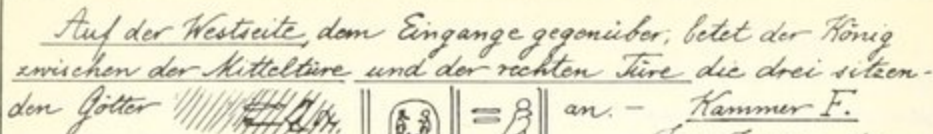 Auf der Westseite, dem Eingange gegenüber, betet der König
zwischen der Mitteltüre und der rechten Türe die drei sitzen-
den Götter an. - Kammer F.